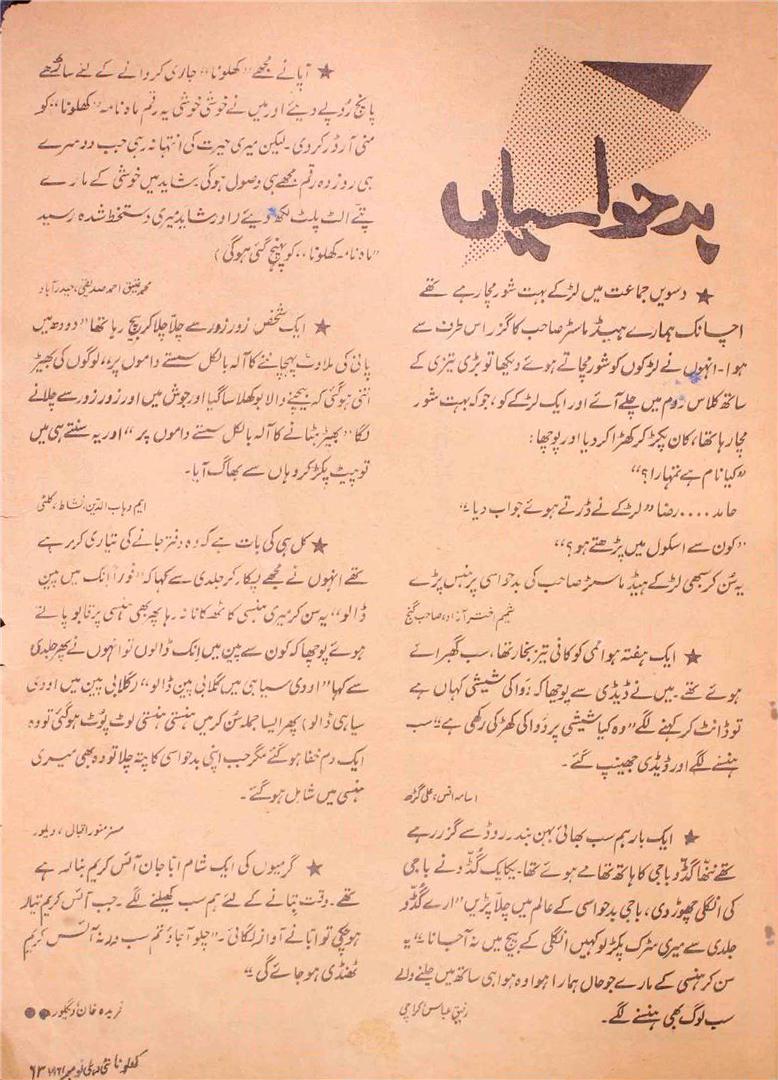 بدحواسیاں
★ دسویں جماعت میں لڑکے بہت شور مچا رہے تھے
اچانک ہمارے ہیڈ ماسٹر صاحب کا گزر اس طرف سے
ہوا۔ انہوں نے لڑکوں کو شور مچاتے ہوئے دیکھا تو بڑی تیزی کے
ساتھ کلاس روم میں چلے آئے اور ایک لڑکے کو، جو کہ بہت شور
مچا رہا تھا، کان پکڑ کر کھڑا کر دیا اور پوچھا:
”کیا نام ہے تمہارا؟“
حامد .... رضا“ لڑکے نے ڈرتے ہوئے جواب دیا۔“
”کون سے اسکول میں پڑھتے ہو؟“
یہ سُن کر سبھی لڑکے ہیڈ ماسٹر صاحب کی بدحواسی پر ہنس پڑے
شمیم اختر آزاد، صاحب گنج
★ ایک ہفتہ ہوا امّی کو کافی تیز بخار تھا، سب گھبرائے
ہوئے تھے۔ میں نے ڈیڈی سے پوچھا کہ دَوا کی شیشی کہاں ہے
تو ڈانٹ کر کہنے لگے ”وہ کیا شیشی پر دَوا کی کھڑکی رکھی ہے“ سب
ہنسنے لگے اور ڈیڈی جھینپ گئے۔
اسامہ انس، علی گڑھ
★ ایک بار ہم سب بھائی بہن بندر روڈ سے گزر رہے
تھے ننھا گڈّو باجی کا ہاتھ تھامے ہوئے تھا۔ یکایک گُڈّو نے باجی
کی انگلی چھوڑ دی، باجی بدحواسی کے عالم میں چلّا پڑیں ”ارے گُڈّو
جلدی سے میری سڑک پکڑ لو کہیں انگلی کے بیچ میں نہ آ جانا“ یہ
سن کر ہنسی کے مارے جو حال ہمارا ہوا وہ ہوا ہی ساتھ میں چلنے والے
سب لوگ بھی ہنسنے لگے۔
رفیق عباس، کراچی
★ آپا نے مجھے ”کھلونا“ جاری کروانے کے لئے ساڑھے
پانچ روپے دیئے اور میں نے خوشی خوشی یہ رقم ماہ نامہ ”کھلونا“ کو
منی آرڈر کر دی۔ لیکن میری حیرت کی انتہا نہ رہی جب دوسرے
ہی روز وہ رقم مجھے ہی وصول ہو گی۔ شاید میں خوشی کے مارے
پتے الٹ پلٹ لکھ دیئے (اور شاید میری دستخط شدہ رسید
”ماہ نامہ کھلونا“ کو پہنچ گئی ہو گی)
محمد عتیق احمد صدیقی، حیدرآباد
★ ایک شخص زور زور سے چلّا چلّا کر بیچ رہا تھا ”دودھ میں
پانی کی ملاوٹ پہچاننے کا آلہ بالکل سستے داموں پر“، لوگوں کی بھیڑ
اتنی ہو گئی کہ بیچنے والا بوکھلا سا گیا اور جوش میں اور زور زور سے چلّانے
لگا ”بھیڑ ہٹانے کا آلہ بالکل سستے داموں پر“ اور یہ سنتے ہی میں
تو پیٹ پکڑ کر وہاں سے بھاگ آیا۔
ایم وہاب الدین نشاط، کلٹی
★ کل ہی کی بات ہے کہ وہ دفتر جانے کی تیاری کر رہے
تھے انہوں نے مجھے پکار کر جلدی سے کہا کہ ”فوراً انک میں پین
ڈالو“ یہ سن کر میری ہنسی کا ٹھکانا نہ رہا پھر بھی ہنسی پر قابو پاتے
ہوئے پوچھا کہ کون سے پین میں اِنک ڈالوں تو انہوں نے پھر جلدی
سے کہا ”اودی سیاہی میں گلابی پین ڈالو“ (گلابی پین میں اودی
سیاہی ڈالو) پھر ایسا جملہ سُن کر میں ہنستی ہنستی لوٹ پوٹ ہو گئی تو وہ
ایک دم خفا ہو گئے مگر جب اپنی بدحواسی کا پتہ چلا تو وہ بھی میری
ہنسی میں شامل ہو گئے۔
مسز منور اقبال، ویلور
★ گرمیوں کی ایک شام ابّا جان آئس کریم بنا رہے
تھے۔ وقت بِتانے کے لئے ہم سب کھیلنے لگے۔ جب آئس کریم تیار
ہو چکی تو ابّا نے آواز لگائی۔ ”چلو آ جاؤ تم سب ورنہ آئس کریم
ٹھنڈی ہو جائے گی“
فریدہ خان، دیگلور ●●
کھلونا نئی دہلی نومبر ۱۹۶۱ء ۶۳